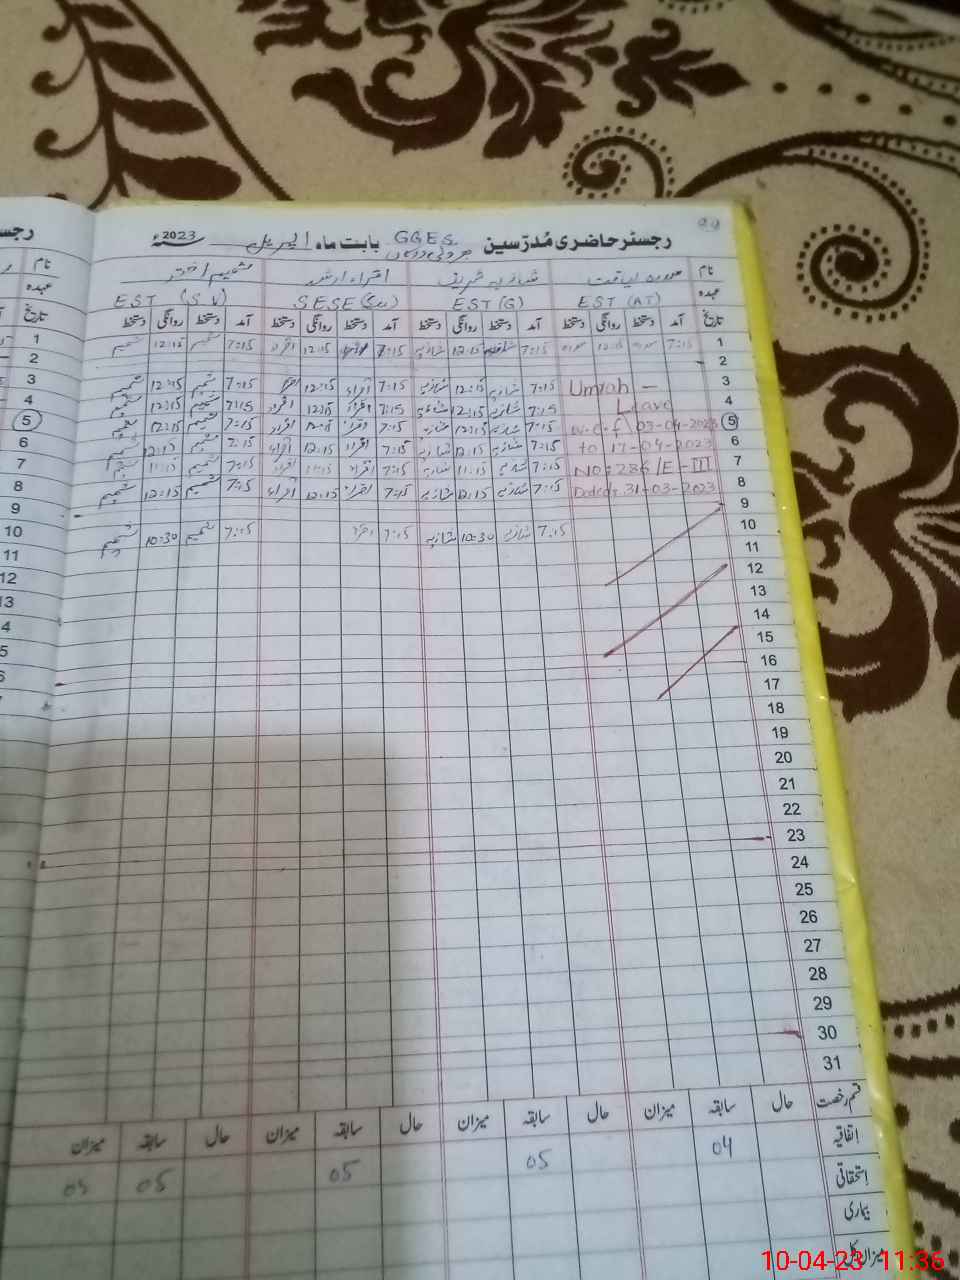 99
رجسٹر حاضری مُدرّسین GGES بابت ماہ اپریل 2023ء
نام شازیہ شریف اقراء ارشد شمیم اختر
عہدہ EST (AT) EST (G) SESE EST (SV)
تاریخ آمد دستخط روانگی دستخط آمد دستخط روانگی دستخط آمد دستخط روانگی دستخط آمد دستخط روانگی دستخط
1 7:15 12:15 7:15 شازیہ 12:15 شازیہ 7:15 اقراء 12:15 اقراء 7:15 شمیم 12:15 شمیم
2
3 Umrah - 7:15 شازیہ 12:15 شازیہ 7:15 اقراء 12:15 اقراء 7:15 شمیم 12:15 شمیم
4 Leave 7:15 شازیہ 12:15 شازیہ 7:15 اقراء 12:15 اقراء 7:15 شمیم 12:15 شمیم
5 W.e.f 03-04-2023 7:15 شازیہ 12:15 شازیہ 7:15 اقراء اقراء 7:15 شمیم 12:15 شمیم
6 to 17-04-2023 7:15 شازیہ 12:15 شازیہ 7:15 اقراء 12:15 اقراء 7:15 شمیم 12:15 شمیم
7 NO: 286/E-III 7:15 شازیہ 11:15 شازیہ 7:15 اقراء 11:15 اقراء 7:15 شمیم 11:15 شمیم
8 Dated: 31-03-2023 7:15 شازیہ 12:15 شازیہ 7:15 اقراء 12:15 اقراء 7:15 شمیم 12:15 شمیم
9
10 7:15 شازیہ 10:30 شازیہ 7:15 اقراء 7:15 شمیم 10:30 شمیم
11
12
13
14
15
16
17
18
19
20
21
22
23
24
25
26
27
28
29
30
31
قسم رخصت حال سابقہ میزان حال سابقہ میزان حال سابقہ میزان حال سابقہ میزان
اتفاقیہ 04 05 05 05 05
استحقاقی
بیماری
میزان کل
10-04-23 11:36